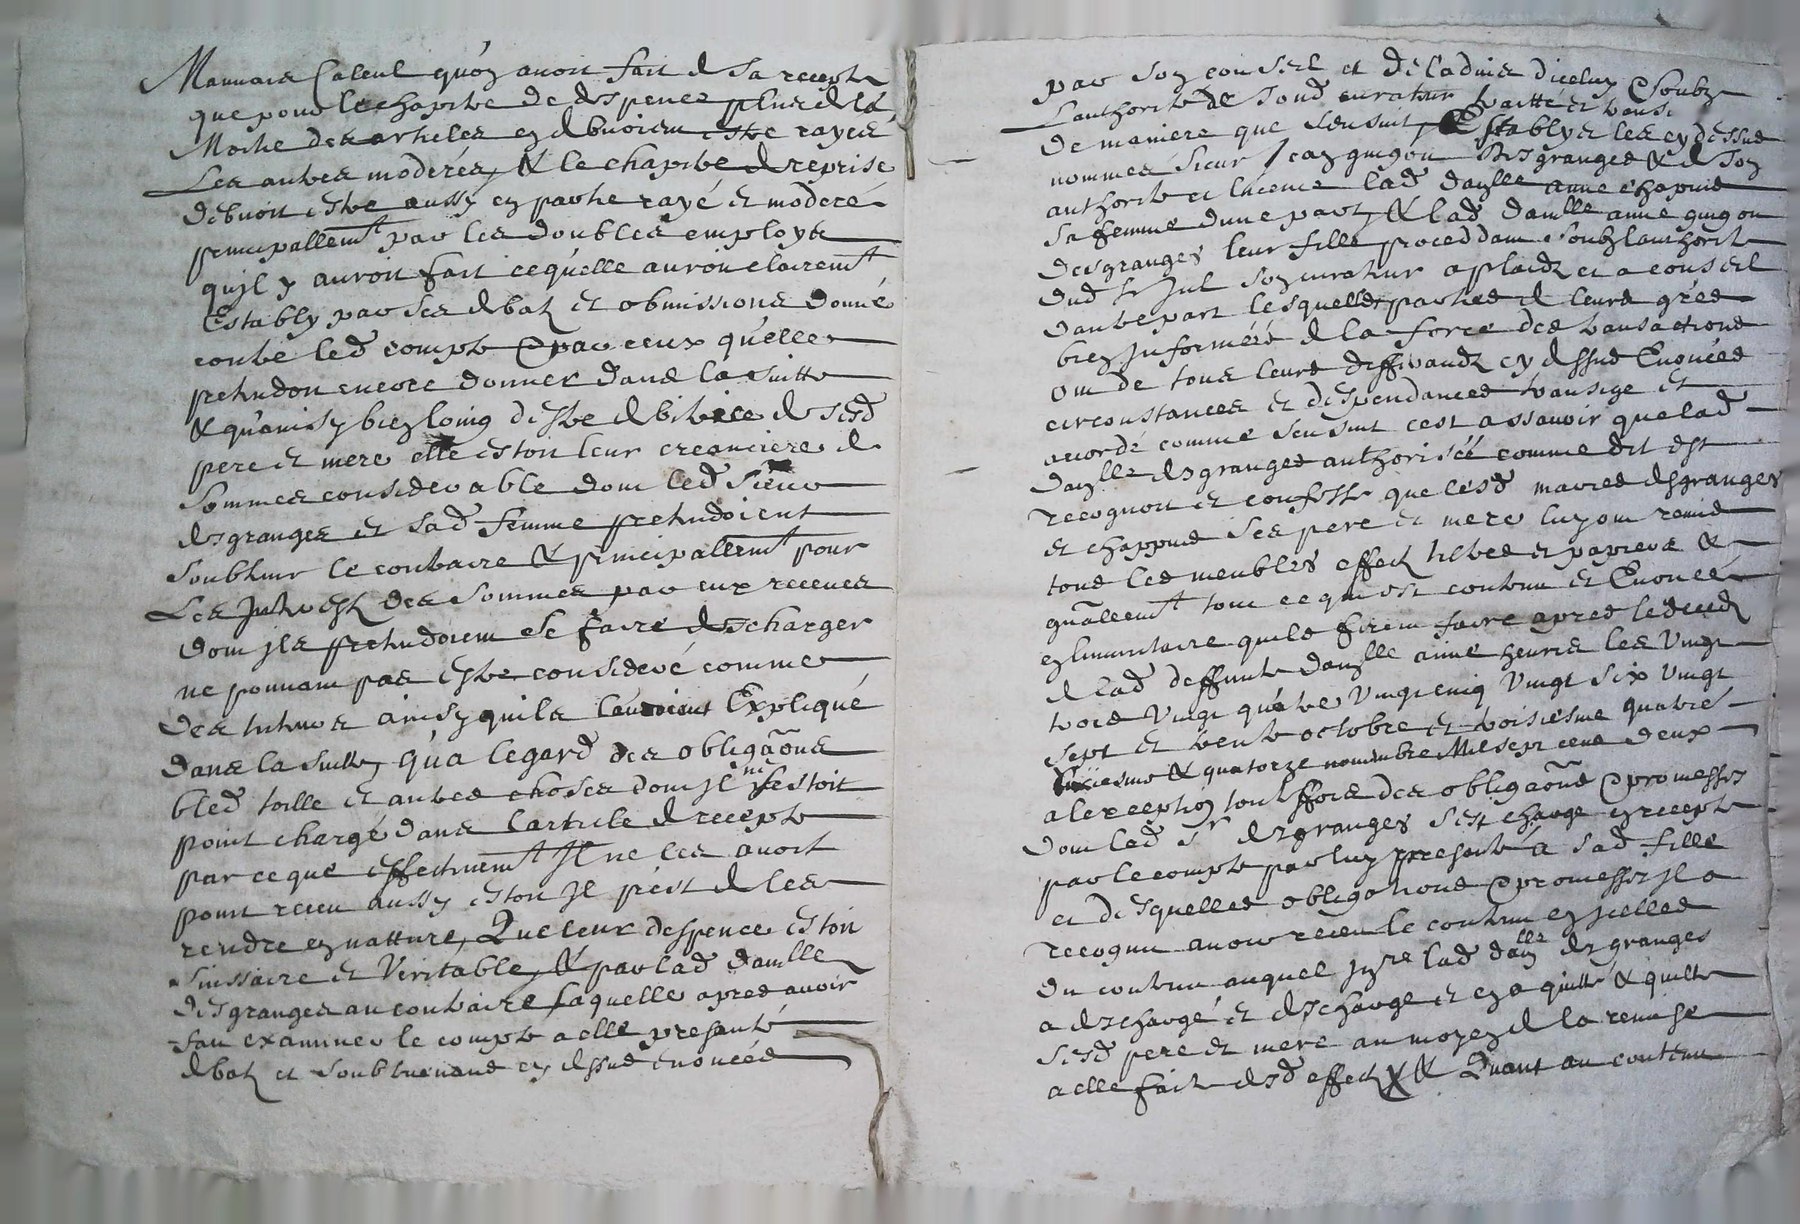 Mauvais Calcul qu'on avoit fait de sa recepte
que pour le chapitre de despence plus de la
Moitie des articles en debvoient estre rayés
Les autres moderés, & le chapitre de reprise
debvoit estre aussy en partie rayé et moderé
principallemt par les doubles employs
qu'il y auroit fait ce qu'elle auroit clairemt
Estably par ses debatz et obmissions donné
contre led compte & par ceux qu'elle
pretendoit encore donner dans la suitte
& qu'ainsy bien loing d'estre debitrice de sesd
pere et mere elle estoit leur creanciere de
sommes considerable dont led sieur
desgranges et sad femme pretendoient
soubtenir le contraire & principallemt pour
Les Interestz des sommes par eux receues
dont ils pretendoient se faire descharger
ne pouvant pas estre consideré comme
des tuteurs ainsy quils l'avoient Expliqué
dans la suitte, qu'a legard des obligaons
bled toille et autres choses dont il ne sestoit
point chargé dans l'article de recepte
parce que effectivemt Il ne les avoit
point receu aussy estoit Il prest de les
rendre en natture, Que leur despence estoit
sinssaire et Veritable, & par lad damlle
desgranges au contraire laquelle apres avoir
fait examiner le compte a elle presanté
debatz et soubtenans cy dessus enoncés
par son conseil et de l'advis d'iceluy & soubz
L'authorité de sond curateur traitté et trans.
de maniere que sensuit, Establys les cy dessus
nommés sieur Jean guigou desgranges & de son
authorité et licence lad damlle anne chapuis
sa femme d'une part, & lad damlle anne guigou
desgranges leur fille proceddant soubz lauthorité
dud sr Jul son curateur a plaidz et a conseil
dautre part lesquelles parties de leurs grées
bien Informéés de la force des transactions
ont de tous leurs differandz cy dessus Enoncés
circonstances et despendances transigé et
accordé comme sensuit cest assavoir que lad
damlle desgranges authoriséé comme dit est
recognoit et confesse que lesd mariés desgranges
et chappuis ses pere et mere luy ont remis
tous les meubles effectz tiltres et papiers &
gñallemt tout ce qui est contenu et Enoncé
en linventaire quils firent faire apres le deceds
de lad deffunte damlle anne heuris les vingt
trois vingt quatre vingt cinq vingt six vingt
sept et trente octobre et troisiesme quatre
sixiesme & quatorze novembre Mil sept cens deux
a lexception touteffois des obligaons & promesses
dont led sr desgranges sest charge en recepte
par le compte par luy presenté a sad fille
et desquelles obligations & promesses Il a
recognu avoir receu le contenu en icelles
du contenu auquel invre lad damlle desgranges
a deschargé et descharge et en a quitté & quitte
sesd pere et mere au moyen de la remise
a elle faite desd effectz & Quant au contenu